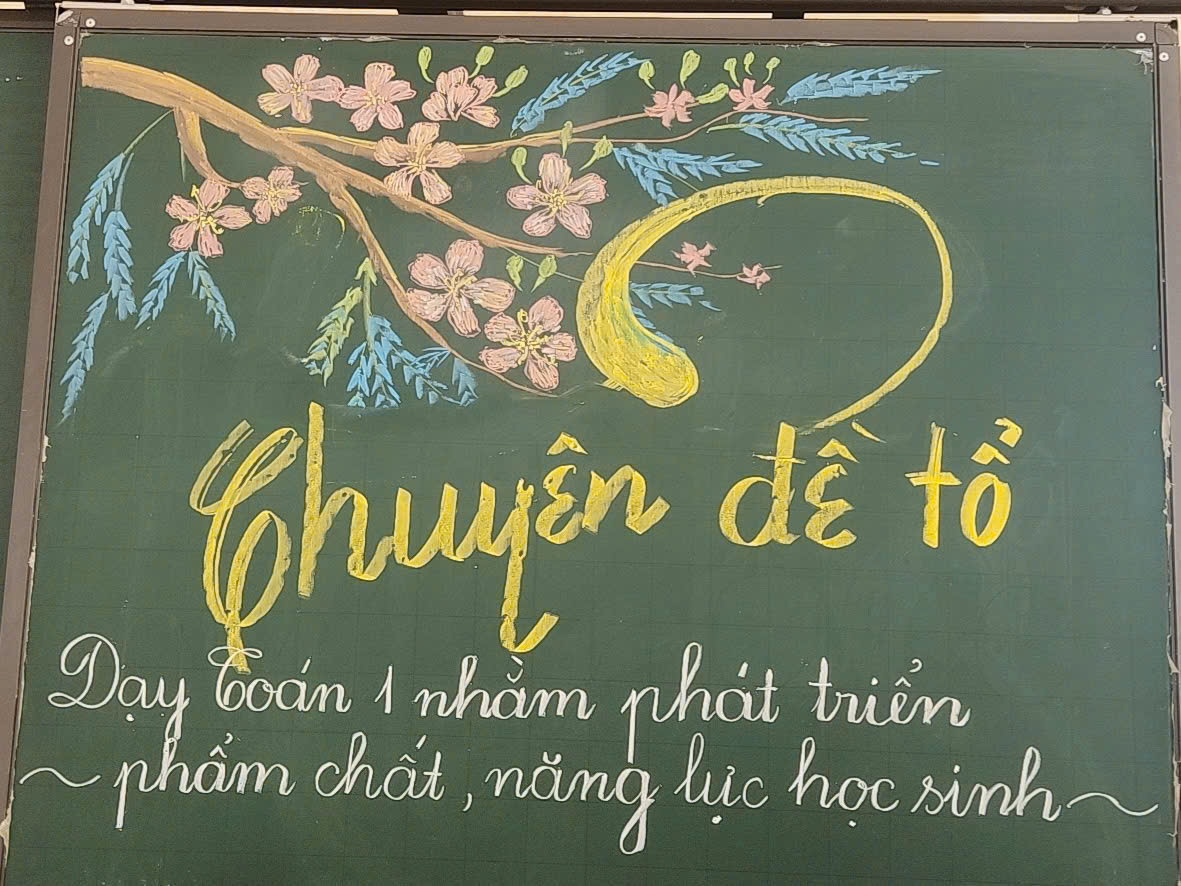 Chuyên đề tổ
Dạy Toán 1 nhằm phát triển
~ phẩm chất, năng lực học sinh ~